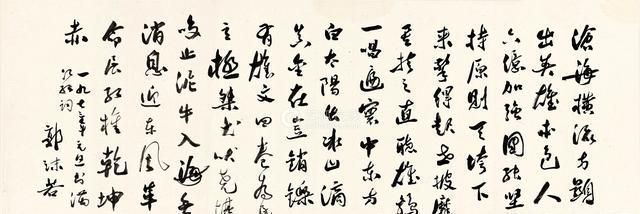 滄海横流方顯
出英雄本色人
六億加強團結堅
持原則天垮下
来擎得起世披靡
矣扶之直聽雄鷄
一唱遍寰中东方
白太陽出冰山滴
真金在豈銷鑠
有雄文四卷為民
立極桀犬吠堯堪
笑止泥牛入海無
消息迎东風革
命展红旗乾坤
赤
一九七年元旦书满
江红词
郭沫若